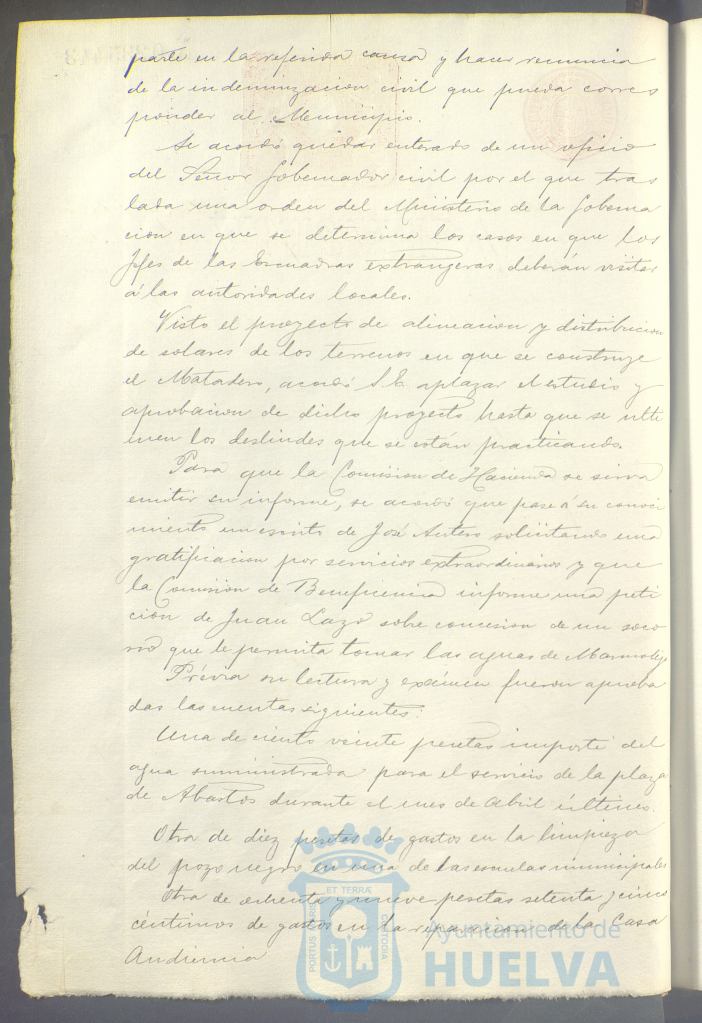 parte en la referida causa y hacer renuncia
de la indemnizacion civil que pueda corres
ponder al Municipio.
Se acordó quedar enterado de un oficio
del Señor Gobernador civil por el que tras
lada una orden del Ministerio de la Goberna
cion en que se determina los casos en que los
Jefes de las Escuadras extrangeras deberán visitar
á las autoridades locales.
Visto el proyecto de alineacion y distribucion
de solares de los terrenos en que se construye
el Matadero, acordó S.E. aplazar el estudio y
aprobacion de dicho proyecto hasta que se ulti
men los deslindes que se están practicando.
Para que la Comision de Hacienda se sirva
emitir su informe, se acordó que pase á su conoci
miento un escrito de José Antero solicitando una
gratificacion por servicios extraordinarios y que
la Comision de Beneficencia informe una peti
cion de Juan Lazo sobre concesion de un soco
rro que le permita tomar las aguas de Marmolejo
Prévia su lectura y exámen fueron aproba
das las cuentas siguientes:
Una de ciento veinte pesetas importe del
agua suministrada para el servicio de la plaza
de Abastos durante el mes de Abril último.
Otra de diez pesetas de gastos en la limpieza
del pozo negro en una de las escuelas municipales
Otra de ochenta y nueve pesetas setenta y cinco
céntimos de gastos en la reparacion de la Casa
Audiencia
PORTUS MARIS
ET TERRÆ
CUSTODIA
Ayuntamiento de
HUELVA